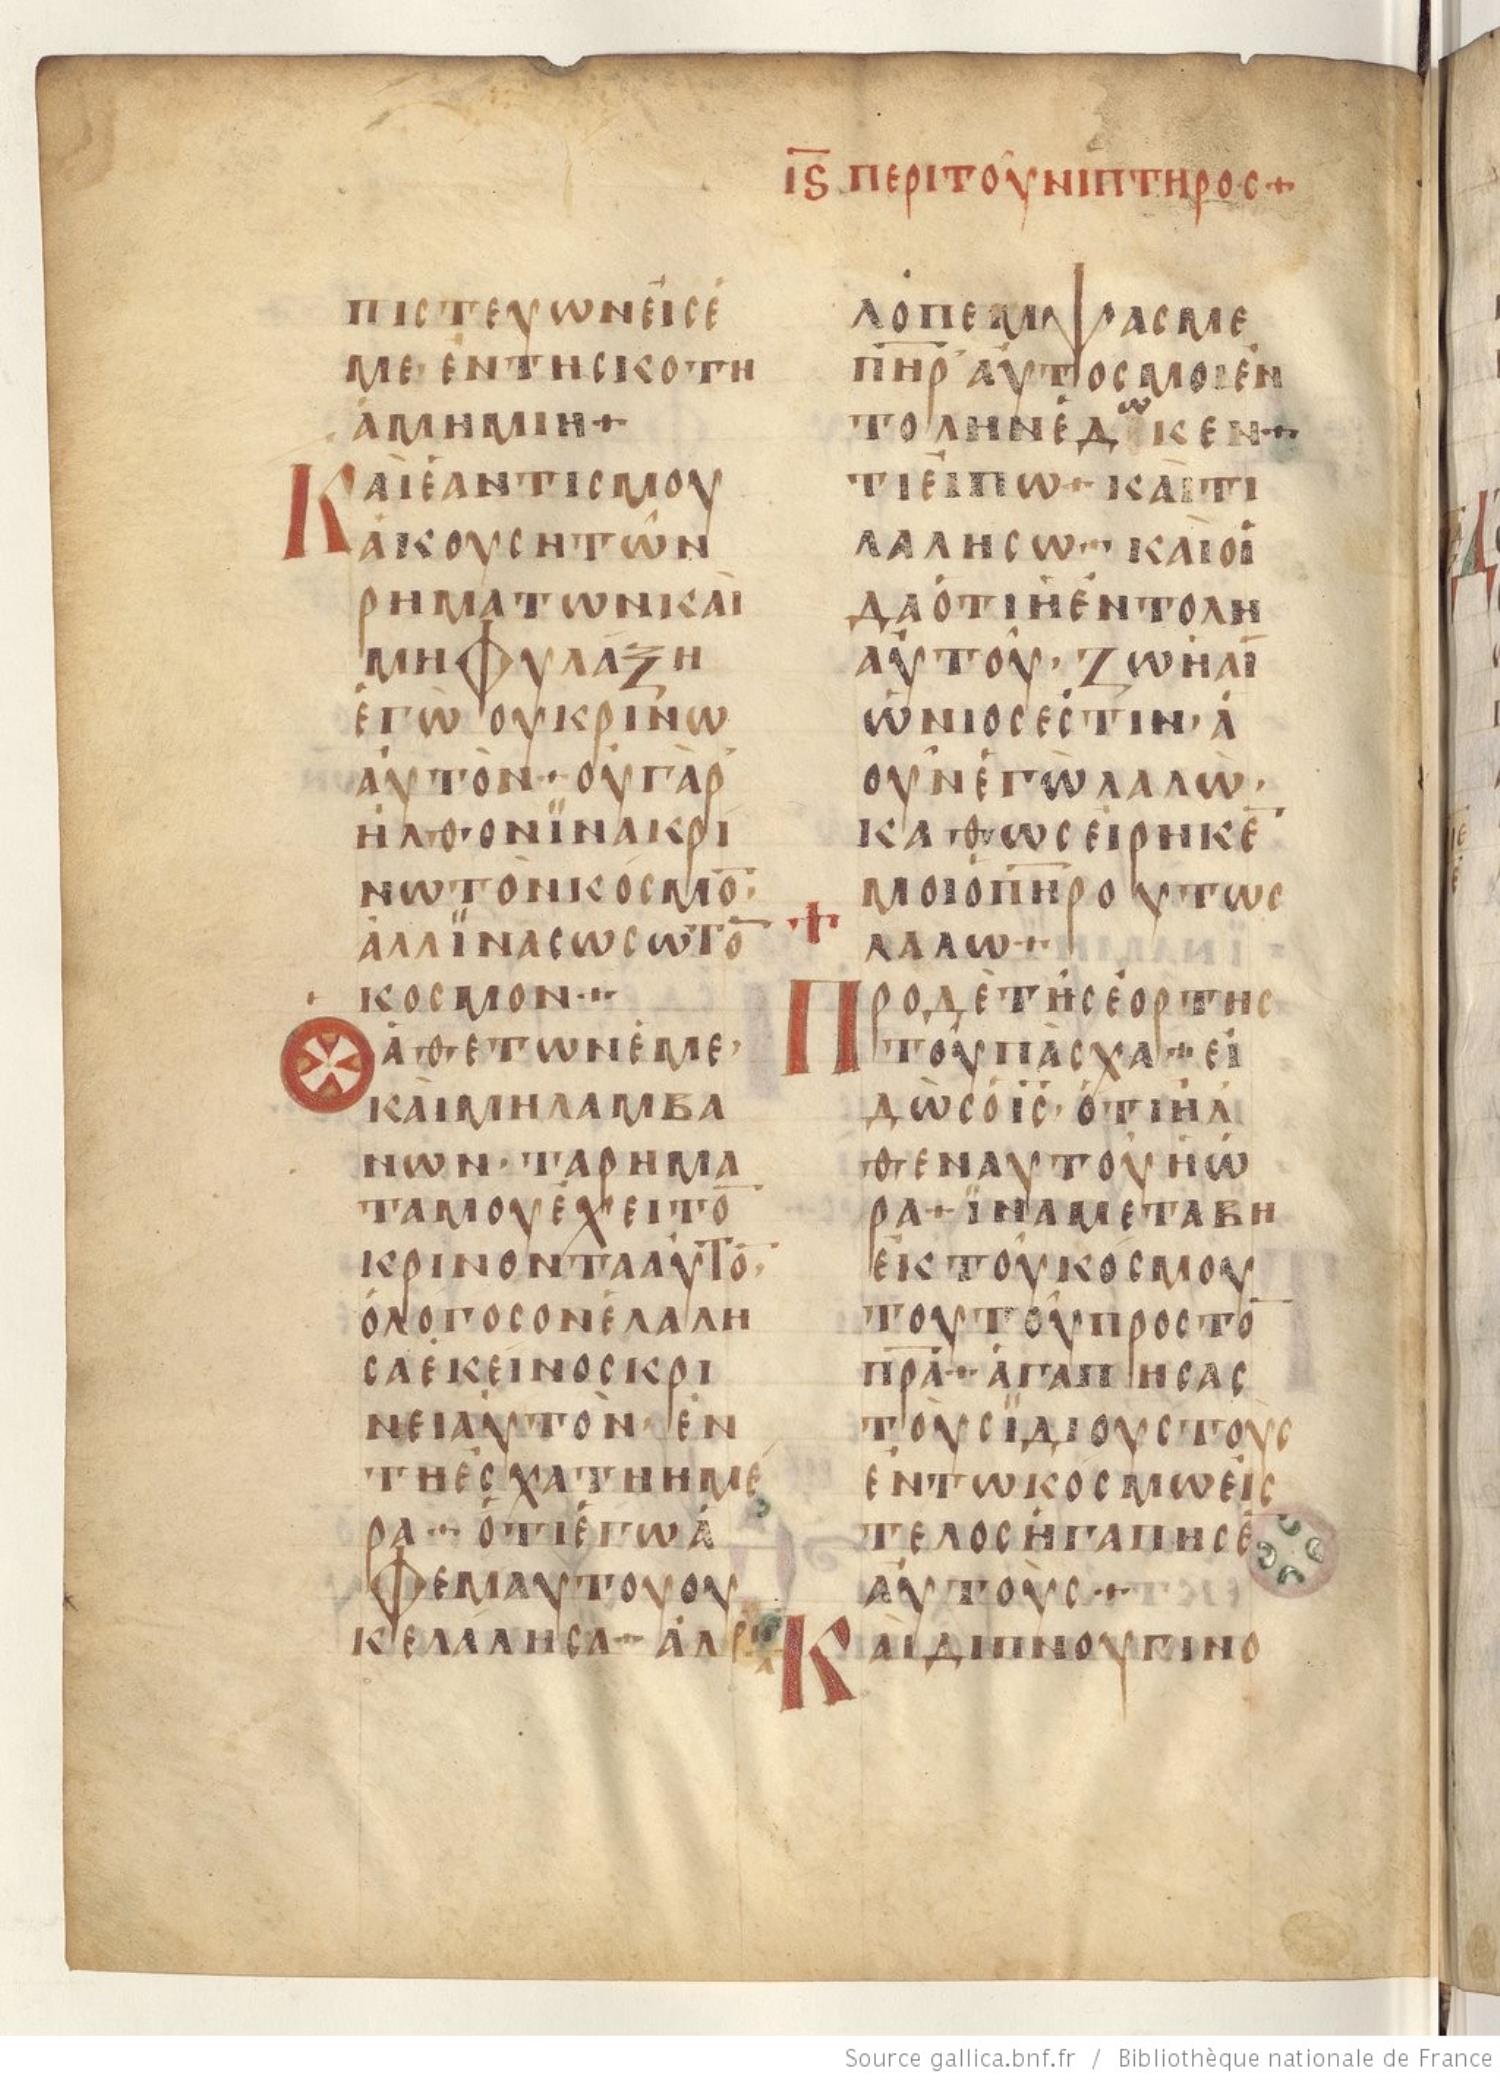 ΙϚ ΠΕΡΙΤΟΥΝΙΠΤΗΡΟΣ+
ΠΙϹΤΕΥΩΝΕΙϹΕ
ΜΕ·ΕΝΤΗϹΚΟΤΗ
ΑΜΗΜΙΗ+
ΚΑΙΕΑΝΤΙϹΜΟΥ
ΑΚΟΥϹΗΤΩΝ
ΡΗΜΑΤΩΝΚΑΙ
ΜΗΦΥΛΑΞΗ
ΕΓΩ ΟΥΚΡΙΝΩ
ΑΥΤΟΝ·ΟΥΓΑΡ
ΗΛΘΟΝΪΝΑΚΡΙ
ΝΩΤΟΝΚΟϹΜΟ̅·
ΑΛΛΪΝΑϹΩϹΩΤΟ̅
ΚΟϹΜΟΝ·+
ΟΑΘΕΤΩΝΕΜΕ·
ΚΑΙΜΗΛΑΜΒΑ
ΝΩΝ·ΤΑΡΗΜΑ
ΤΑΜΟΥΕΧΕΙΤΟ̅
ΚΡΙΝΟΝΤΑΑΥΤΟ̅·
ΟΛΟΓΟϹΟΝΕΛΑΛΗ
ϹΑΕΚΕΙΝΟϹΚΡΙ
ΝΕΙΑΥΤΟΝ·ΕΝ
ΤΗΕϹΧΑΤΗΗΜΕ
ΡΑ+ΟΤΙΕΓΩΑ
ΦΕΜΑΥΤΟΥΟΥ
ΚΕΛΑΛΗϹΑ+ΑΛ
ΛΟΠΕΜΨΑϹΜΕ
Π̅Η̅Ρ̅ ΑΥΤΟϹΜΟΙΕΝ
ΤΟΛΗΝΕΔΩΚΕΝ+
ΤΙΕΙΠΩ+ΚΑΙΤΙ
ΛΑΛΗϹΩ+ΚΑΙΟΙ
ΔΑΟΤΙΗΕΝΤΟΛΗ
ΑΥΤΟΥ·ΖΩΗΑΙ
ΩΝΙΟϹΕϹΤΙΝ·Α
ΟΥΝΕΓΩΛΑΛΩ·
ΚΑΘΩϹΕΙΡΗΚΕ̅
ΜΟΙΟΠ̅Η̅Ρ̅ΟΥΤΩϹ
ΛΑΛΩ+
ΠΡΟΔΕΤΗϹΕΟΡΤΗϹ
ΤΟΥΠΑϹΧΑ+ΕΙ
ΔΩϹΟΙ̅Ϲ̅·ΟΤΙΗΛ
ΘΕΝΑΥΤΟΥΗΩ
ΡΑ+ΪΝΑΜΕΤΑΒΗ
ΕΚΤΟΥΚΟϹΜΟΥ
ΤΟΥΤΟΥΠΡΟϹΤΟ̅
Π̅Ρ̅Α̅+ΑΓΑΠΗϹΑϹ
ΤΟΥϹΪΔΙΟΥϹΤΟΥϹ
ΕΝΤΩΚΟϹΜΩΕΙϹ
ΤΕΛΟϹΗΓΑΠΗϹΕ̅
ΑΥΤΟΥϹ+
ΚΑΙΔΙΠΝΟΥΓΙΝΟ
Source gallica.bnf.fr / Bibliothèque nationale de France